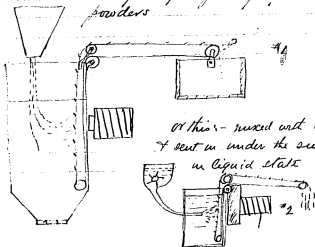 powders
#1
or this:- mixed with
& sent in under the
in liquid state
#2